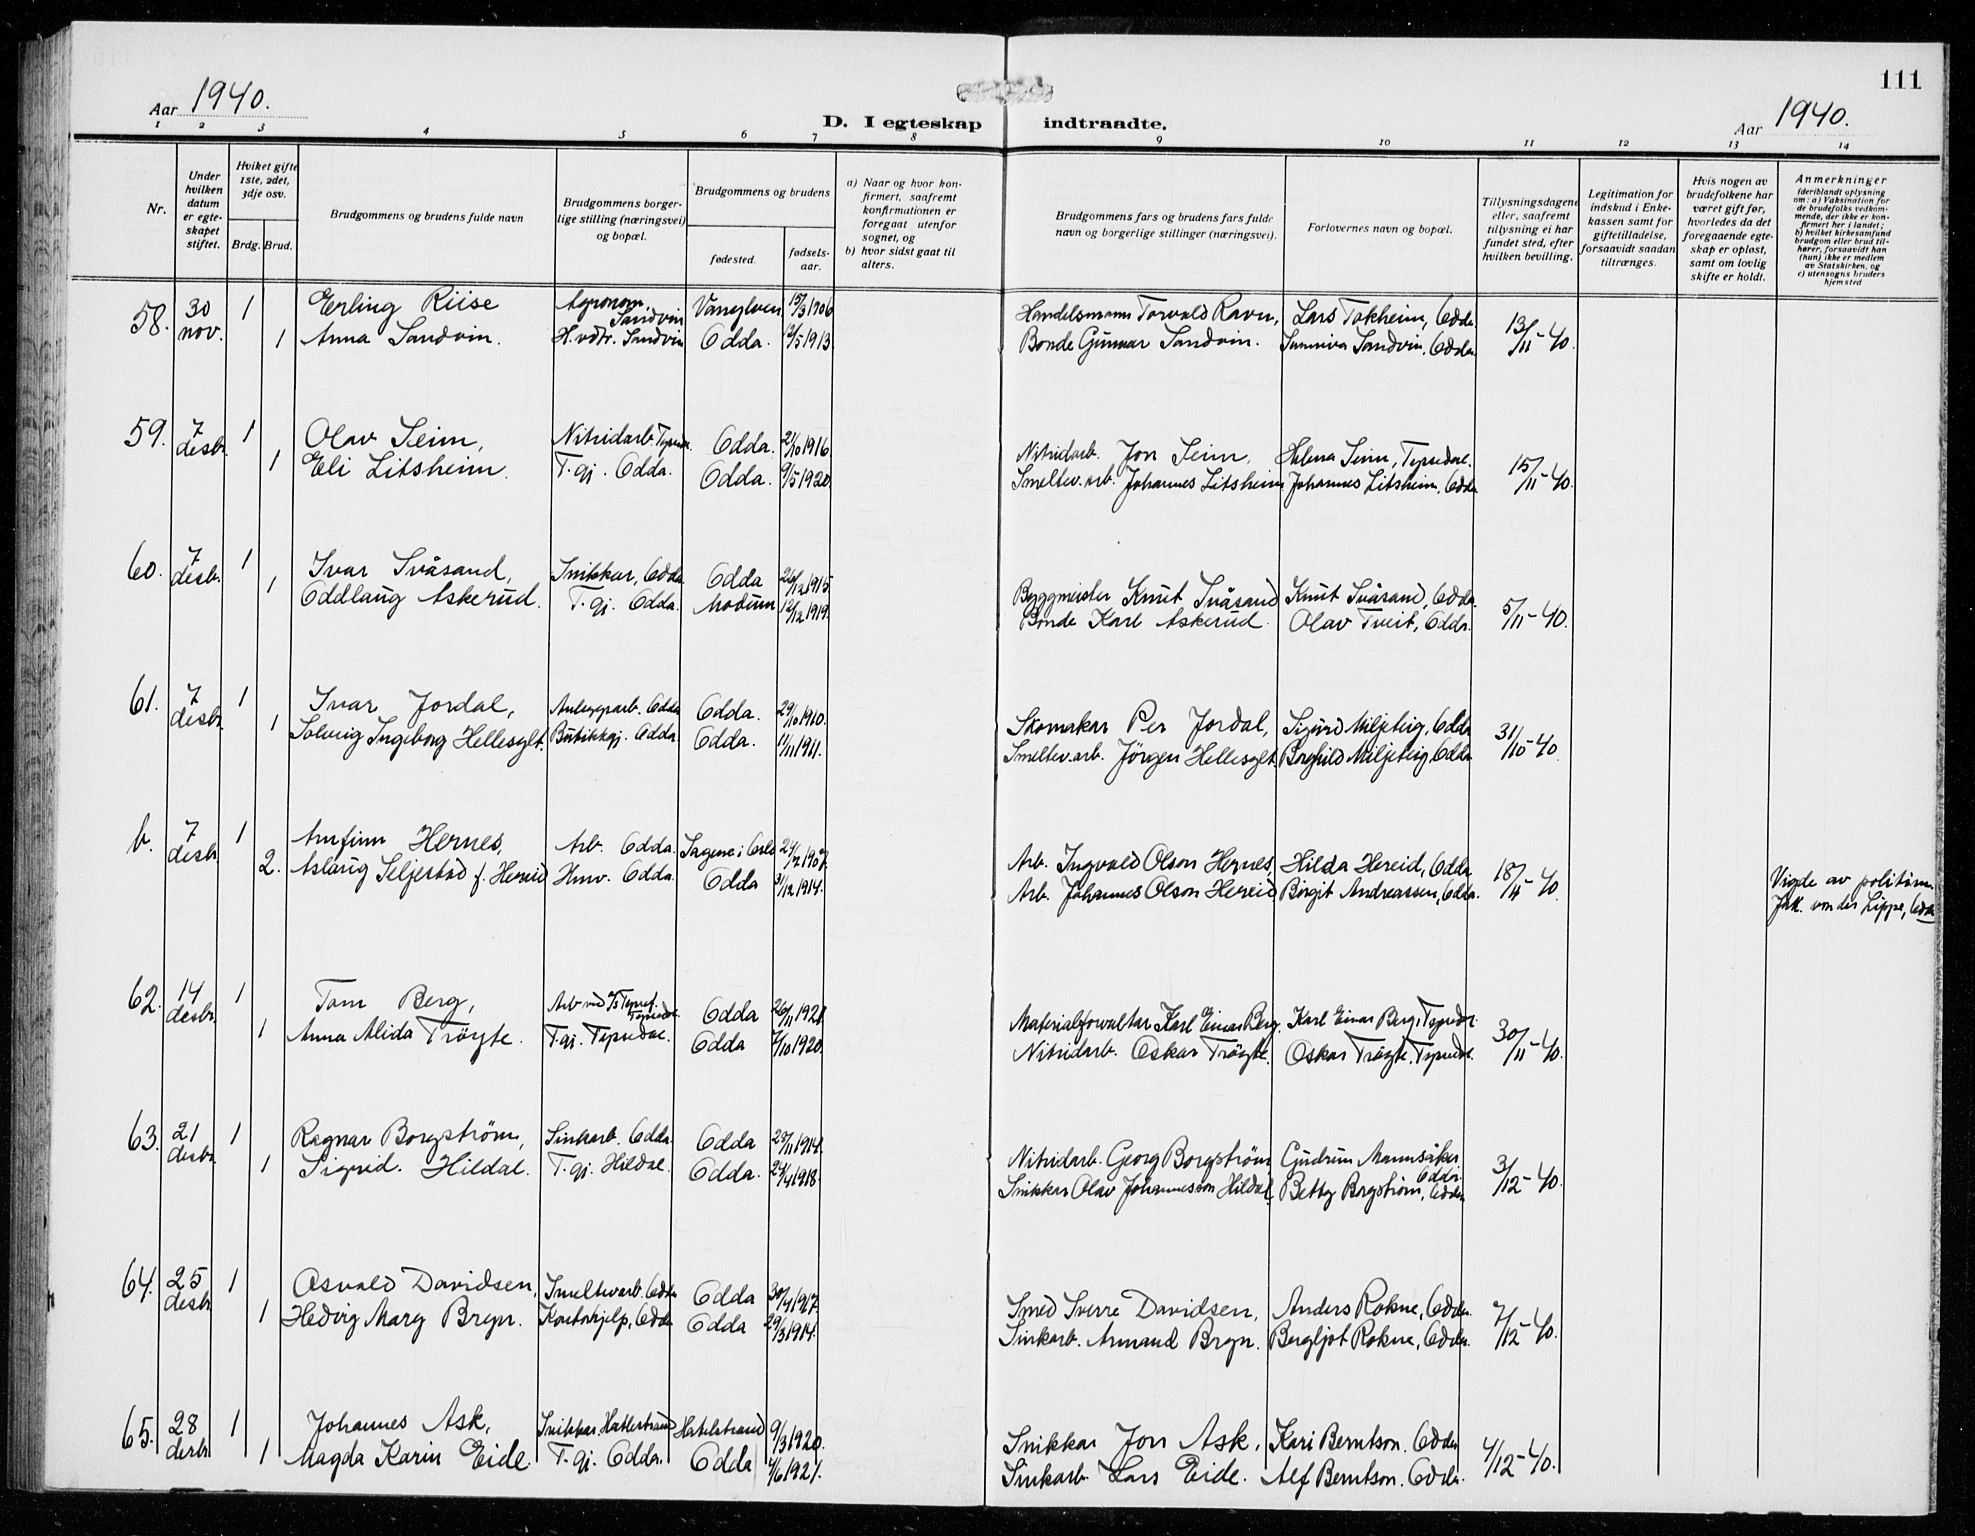 111
Aar 1940.
D. I egteskap indtraadte.
Aar 1940.
1 2 3 4 5 6 7 8 9 10 11 12 13 14
Nr.
Under hvilken datum er egteskapet stiftet.
Hviket gifte 1ste, 2det, 3dje osv.
Brdg. Brud.
Brudgommens og brudens fulde navn
Brudgommens borgerlige stilling (næringsvei) og bopæl.
Brudgommens og brudens
fødested.
fødselsaar.
a) Naar og hvor konfirmert, saafremt konfirmationen er foregaat utenfor sognet, og
b) hvor sidst gaat til alters.
Brudgommens fars og brudens fars fulde navn og borgerlige stillinger (næringsvei).
Forlovernes navn og bopæl.
Tillysningsdagene eller, saafremt tillysning ei har fundet sted, efter hvilken bevilling.
Legitimation for indskud i Enkekassen samt for giftetilladelse, forsaavidt saadan tiltrænges.
Hvis nogen av brudefolkene har været gift før, hvorledes da det foregaaende egteskap er opløst, samt om lovlig skifte er holdt.
Anmerkninger (deriblandt oplysning om: a) Vaksination for de brudefolks vedkommende, der ikke er konfirmert her i landet; b) hvilket kirkesamfund brudgom eller brud tilhører, forsaavidt han (hun) ikke er medlem av Statskirken, og c) utensogns bruders hjemsted
58. 30 nov. 1 Erling Riise Agronom, Sandvin Vangylven 15/3 1906 Handelsmann Torvald Ravn, Lars Tokheim, Odda 13/11-40.
1 Anna Sandvin. H.vdtr. Sandvin Odda. 12/5 1913. Bonde Gunnar Sandvin. Sunniva Sandvin, Odda.
59. 7 desbr. 1 Olav Seim, Nitridarb. Tyssedal Odda. 21/10 1916 Nitridarb. Jon Seim, Helena Seim, Tyssedal. 15/11-40.
1 Eli Litsheim. T. gj. Odda. Odda. 9/5 1920 Smeltev.arb. Johannes Litsheim Johannes Litsheim, Odda
60. 7 desbr. 1 Ivar Svåsand, Snikkar, Odda Odda 26/12 1915. Byggmeister Knut Svåsand Knut Svåsand, Odda. 5/11-40.
1 Oddlaug Askerud. T. gj. Odda. Modum 12/12 1919. Bonde Karl Askerud. Olav Tveit, Odda.
61. 7 desbr. 1 Ivar Jordal, Anleggsarb. Odda Odda. 29/10 1910. Skomakar Per Jordal, Sigurd Miljeteig, Odda 31/10-40.
1 Solveig Ingeborg Hellesylt. Butikkgj. Odda. Odda. 11/11 1911. Smeltev.arb. Jörgen Hellesylt. Borghild Miljeteig Odda
b. 7 desbr. 1 Arnfinn Hernes, Arb. Odda. Sagene i Oslo 24/2 1907. Arb. Ingvald Olson Hernes, Hilda Hereid, Odda 18/11-40.
2. Aslaug Seljestad f. Hereid Hmv. Odda. Odda 31/12 1914. Arb. Johannes Olson Hereid Birgit Andreassen, Odda. Vigde av politim. Jak. von der Lippe, Odda
62. 14 desbr. 1 Tom Berg, Arb ved A/S Tyssef. Tyssedal. Odda 26/11 1921. Materialforvaltar Karl Einar Berg. Karl Einar Berg, Tyssedal 30/11-40.
1 Anna Alida Tröyte. T. gj. Tyssedal. Odda 7/10 1920. Nitridarb. Oskar Tröyte. Oskar Tröyte. Tyssedal.
63. 21 desbr. 1 Ragnar Borgström, Sinkarb. Odda Odda 23/11 1914. Nitridarb. Georg Borgström Gudrun Mannsåker Odda. 3/12-40.
1 Sigrid. Hildal. T. gj. Hildal. Odda. 24/4 1918. Snikkar Olav Johannesson Hildal, Betty Borgström, Odda
64. 25 desbr. 1 Osvald Davidsen, Smeltevarb. Odda Odda 30/4 1917. Smed Sverre Davidsen, Anders Rokne, Odda 7/12-40.
1 Hedvig Marg Bryn. Kontorhjelp, Odda Odda 29/3 1914. Sinkarb. Armand Bryn. Bergljot Rokne, Odda.
65. 28 desbr. 1 Johannes Ask, Snikkar, Hatlestrand Hatlestrand 9/3 1920. Snikkar Jon Ask, Kari Berntson. Odda 4/12-40.
1 Magda Karin Eide. T. gj. Odda. Odda 4/6 1921. Sinkarb. Lars Eide. Alf Berntson. Odda.